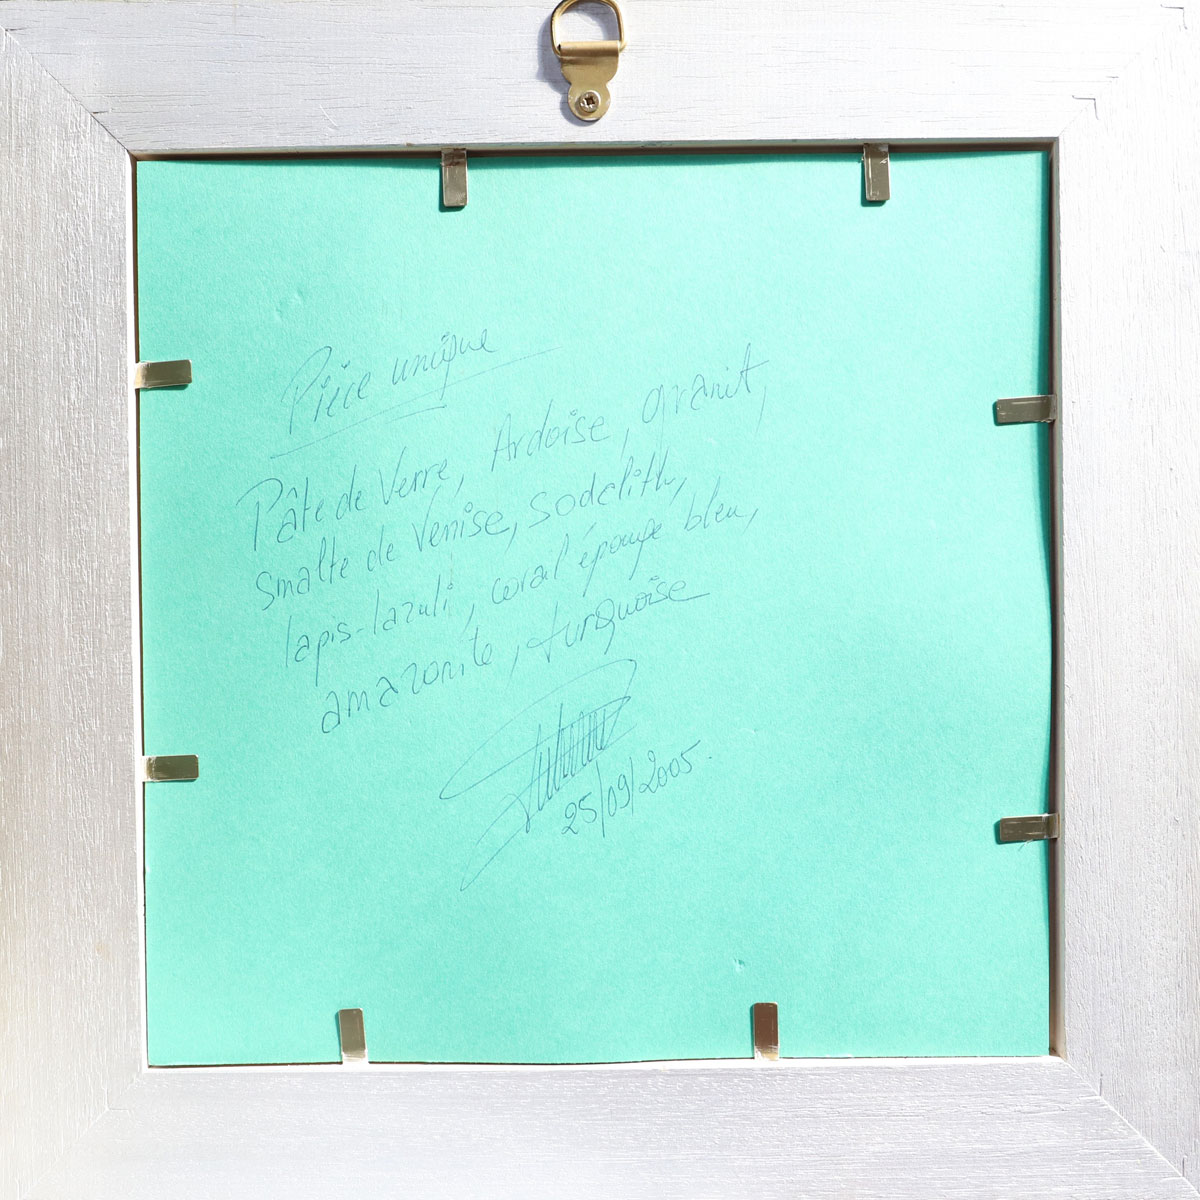 Pièce unique
Pâte de Verre, Ardoise, granit,
smalte de Venise, sodalith,
lapis-lazuli, corail éponge bleu,
amazonite, turquoise
25/09/2005.